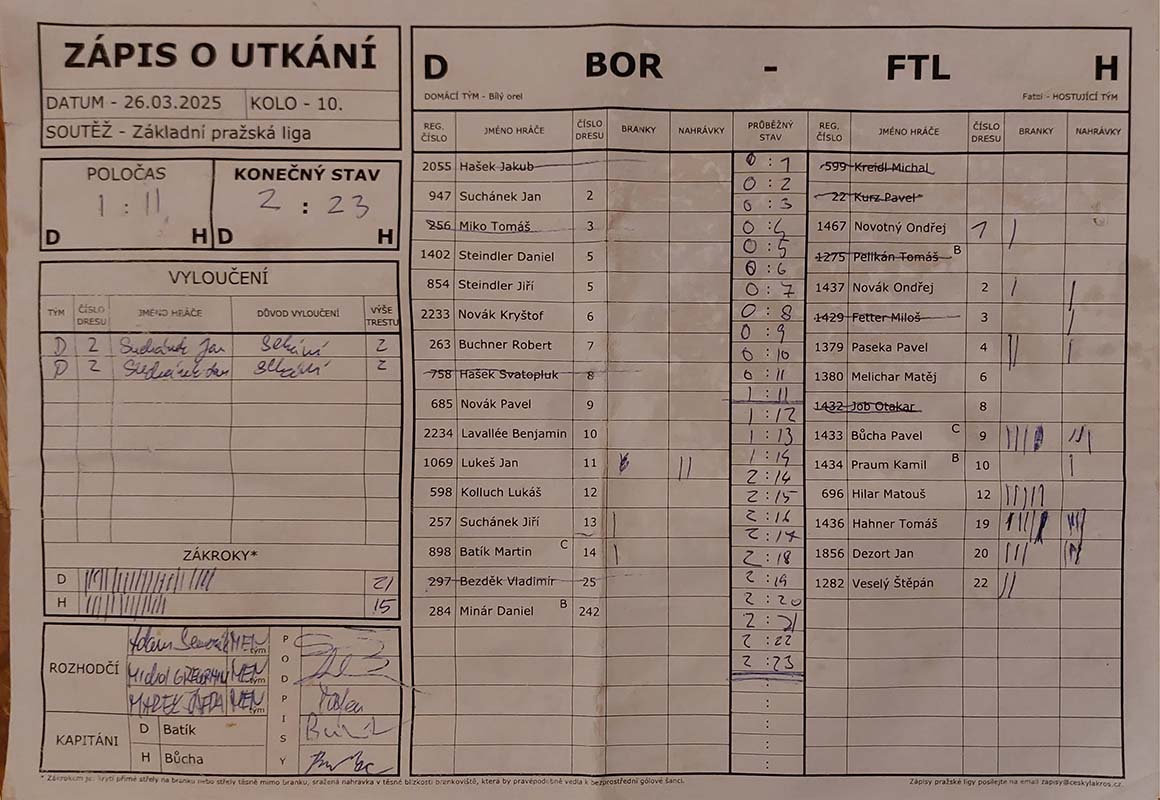 ZÁPIS O UTKÁNÍ
DATUM - 26.03.2025 KOLO - 10.
SOUTĚŽ - Základní pražská liga
POLOČAS KONEČNÝ STAV
1 : 11 2 : 23
D H D H
VYLOUČENÍ
TÝM ČÍSLO DRESU JMÉNO HRÁČE DŮVOD VYLOUČENÍ VÝŠE TRESTU
D 2 Suchánek Jan sekání 2
D 2 Suchánek Jan sekání 2
ZÁKROKY*
D 21
H 15
ROZHODČÍ PODPISY
MEN tým
Michal MEN tým
MAREK MEN tým
KAPITÁNI
D Batík
H Bůcha
D BOR - FTL H
DOMÁCÍ TÝM - Bílý orel Fatal - HOSTUJÍCÍ TÝM
REG. ČÍSLO JMÉNO HRÁČE ČÍSLO DRESU BRANKY NAHRÁVKY PRŮBĚŽNÝ STAV REG. ČÍSLO JMÉNO HRÁČE ČÍSLO DRESU BRANKY NAHRÁVKY
2055 Hašek Jakub
947 Suchánek Jan 2
256 Miko Tomáš 3
1402 Steindler Daniel 5
854 Steindler Jiří 5
2233 Novák Kryštof 6
263 Buchner Robert 7
758 Hašek Svatopluk 8
685 Novák Pavel 9
2234 Lavallée Benjamin 10
1069 Lukeš Jan 11 ||
598 Kolluch Lukáš 12
257 Suchánek Jiří 13 |
898 Batík Martin C 14 |
297 Bezděk Vladimír 25
284 Minár Daniel B 242
0 : 1
0 : 2
0 : 3
0 : 4
0 : 5
0 : 6
0 : 7
0 : 8
0 : 9
0 : 10
0 : 11
1 : 11
1 : 12
1 : 13
1 : 14
2 : 14
2 : 15
2 : 16
2 : 17
2 : 18
2 : 19
2 : 20
2 : 21
2 : 22
2 : 23
599 Kreidl Michal
22 Kurz Pavel
1467 Novotný Ondřej 1 |
1275 Pelikán Tomáš B
1437 Novák Ondřej 2 | |
1429 Fetter Miloš 3 |
1379 Paseka Pavel 4 || |
1380 Melichar Matěj 6
1432 Job Otakar 8
1433 Bůcha Pavel C 9
1434 Praum Kamil B 10 |
696 Hilar Matouš 12 |||||
1436 Hahner Tomáš 19
1856 Dezort Jan 20 |||
1282 Veselý Štěpán 22 ||
* Zákrokem je: krytí přímé střely na branku nebo střely těsně mimo branku, sražená nahrávka v těsné blízkosti brankoviště, která by pravěpodobně vedla k bezprostřední gólové šanci.
Zápisy pražské ligy posílejte na email zapisy@ceskylakros.cz.